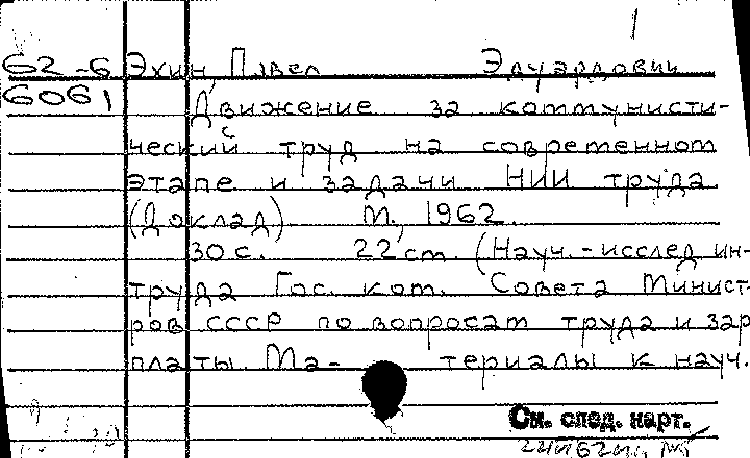 1
62-6 Эхин, Павел Эдуардович
6061 Движение за коммунисти-
ческий труд на современном
этапе и задачи НИИ труда
(Доклад) М., 1962.
30 с. 22 см. (Науч.-исслед. ин-
труда Гос. ком. Совета Минист-
ров СССР по вопросам труда и зар
платы. Ма- териалы к науч.
См. след. карт.